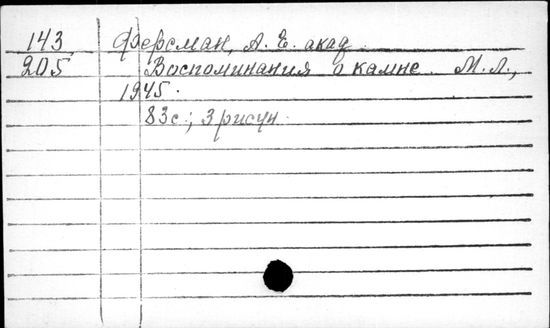 143 Ферсман, А. Е. акад.
205 Воспоминания о камне. М. Л.,
1945.
83 с.; 3 рисун.